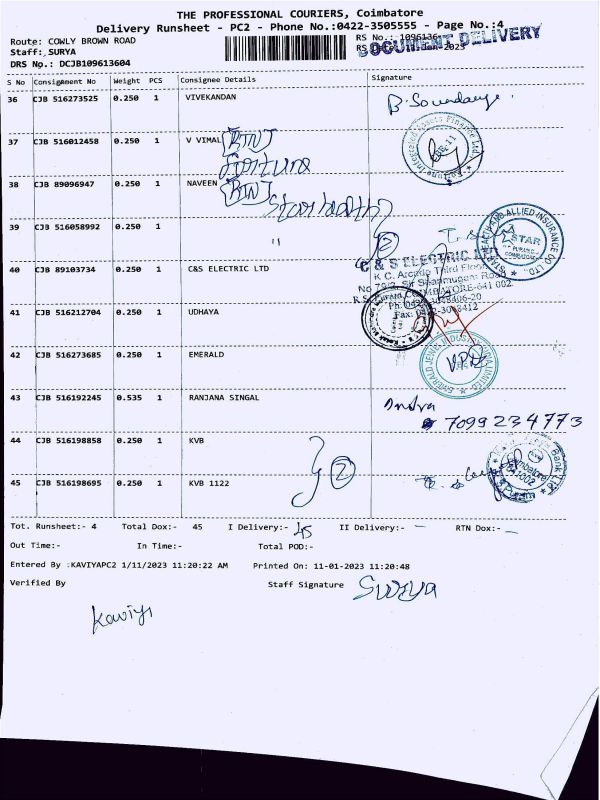 THE PROFESSIONAL COURIERS, Coimbatore
Delivery Runsheet - PC2 - Phone No.:0422-3505555 - Page No.:4
Route: COWLY BROWN ROAD
RS No.: 1096136
DOCUMENT DELIVERY
Staff: SURYA
DRS No.: DCJB109613604
S No Consignment No Weight PCS Consignee Details Signature
36 CJB 516273525 0.250 1 VIVEKANDAN
37 CJB 516012458 0.250 1 V VIMAL RTN
38 CJB 89096947 0.250 1 NAVEEN RTN
39 CJB 516058992 0.250 1 " 2
HEALTH AND ALLIED INSURANCE CO LTD.
STAR
40 CJB 89103734 0.250 1 C&S ELECTRIC LTD
C & S ELECTRIC LTD
K C. Arcade Third Floor
41 CJB 516212704 0.250 1 UDHAYA
42 CJB 516273685 0.250 1 EMERALD
EMERALD JEWEL INDUSTRY INDIA LIMITED
43 CJB 516192245 0.535 1 RANJANA SINGAL
Indra
7099234773
44 CJB 516198858 0.250 1 KVB
45 CJB 516198695 0.250 1 KVB 1122
2
Tot. Runsheet:- 4 Total Dox:- 45 I Delivery:- 45 II Delivery:- - RTN Dox:- -
Out Time:- In Time:- Total POD:-
Entered By :KAVIYAPC2 1/11/2023 11:20:22 AM Printed On: 11-01-2023 11:20:48
Verified By Staff Signature Surya